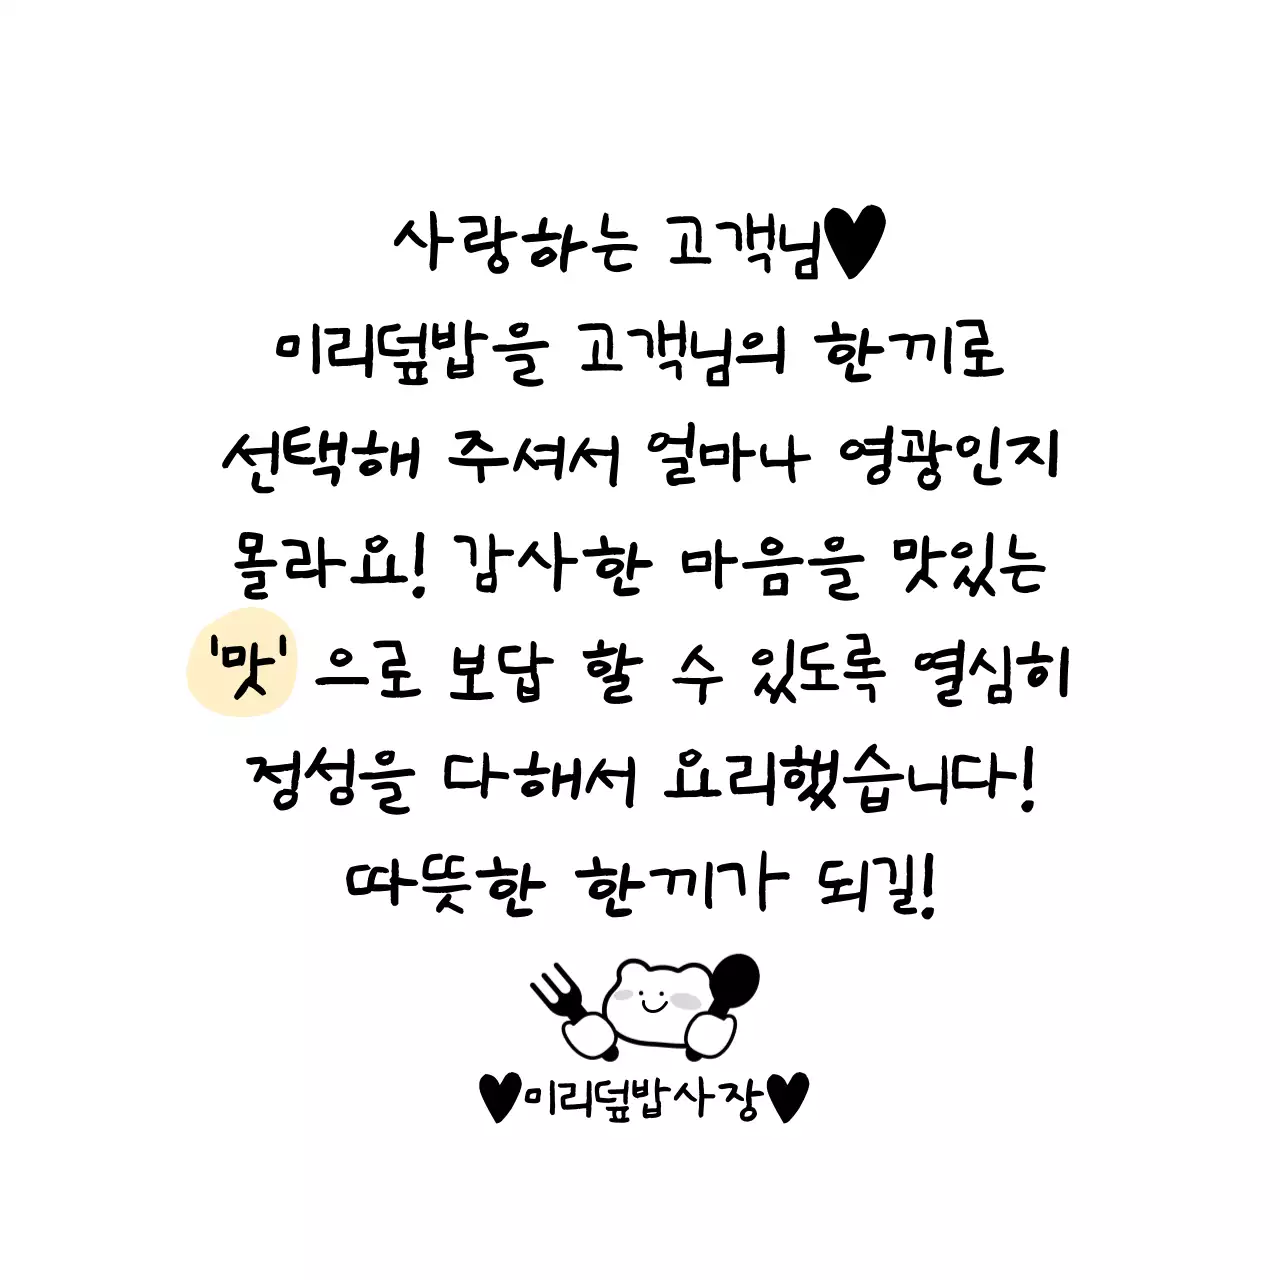 사랑하는 고객님♥
미리덮밥을 고객님의 한끼로
선택해 주셔서 얼마나 영광인지
몰라요! 감사한 마음을 맛있는
'맛' 으로 보답 할 수 있도록 열심히
정성을 다해서 요리했습니다!
따뜻한 한끼가 되길!
♥미리덮밥사장♥